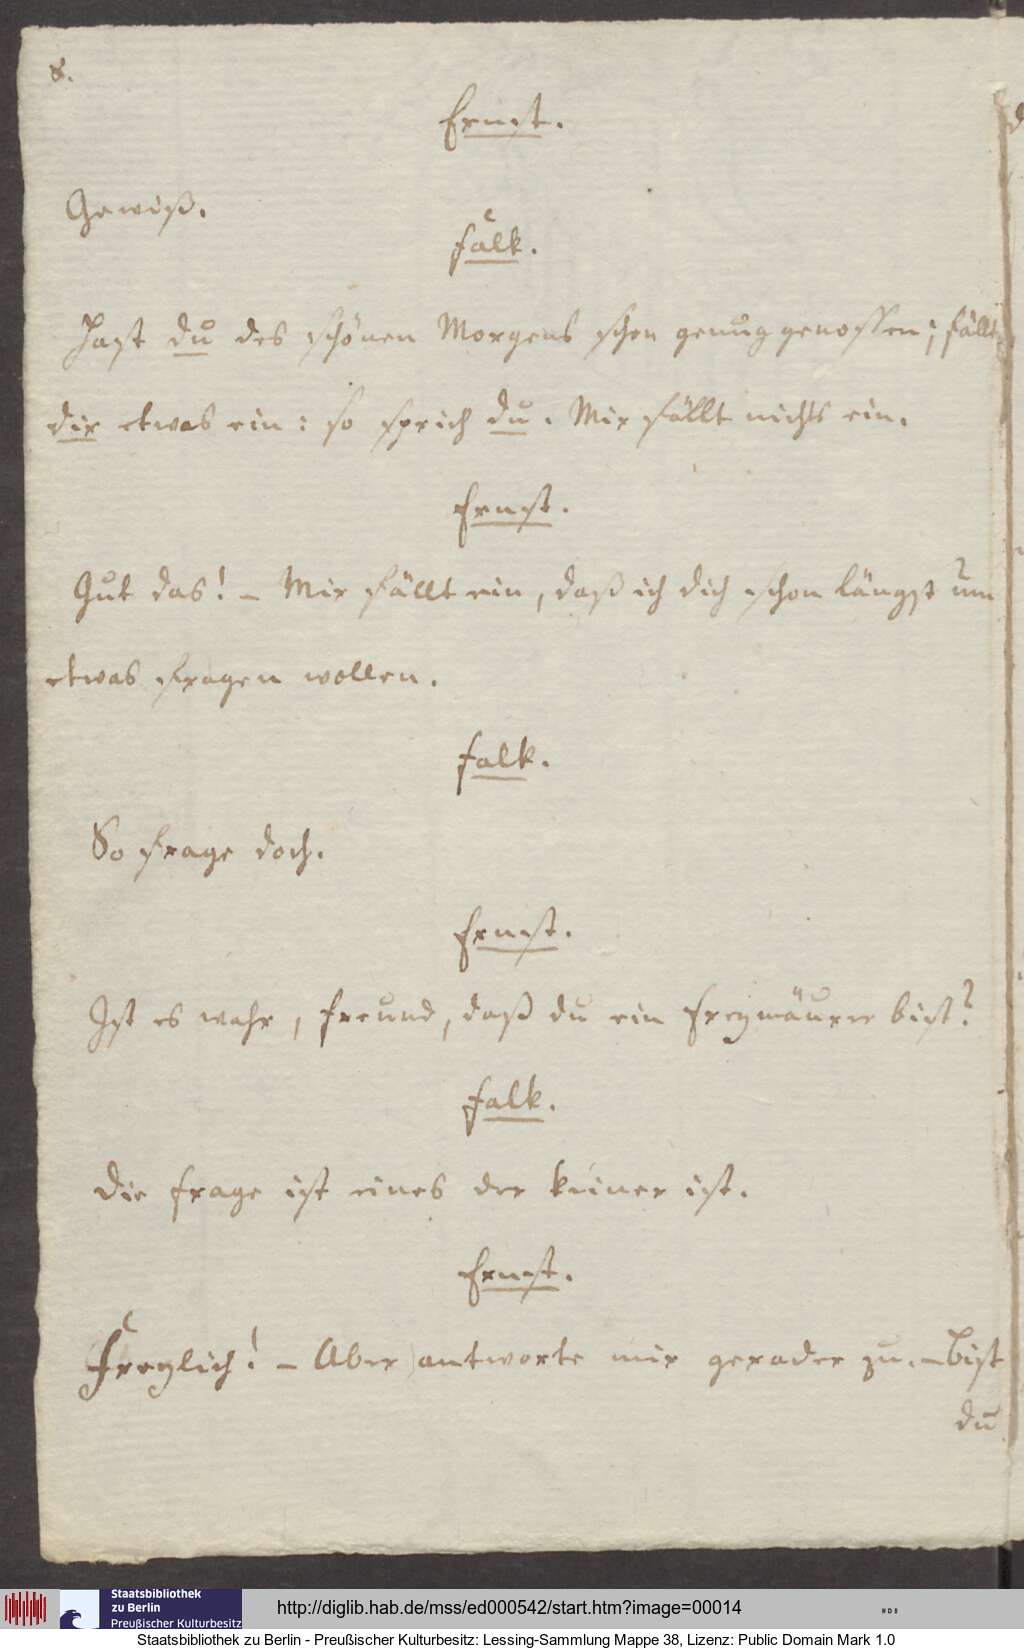 8.
Ernst.
Gewiß.
Falk.
Hast du des schönen Morgens schon genug genossen; fällt
dir etwas ein: so sprich du. Mir fällt nichts ein.
Ernst.
Gut das! – Mir fällt ein, daß ich dich schon längst um
etwas fragen wollen.
Falk.
So frage doch.
Ernst.
Ist es wahr, Freund, daß du ein Freymäurer bist?
Falk.
Die Frage ist eines der keiner ist.
Ernst.
Freylich! – Aber antworte mir gerader zu. – Bist
du
Staatsbibliothek
zu Berlin
Preußischer Kulturbesitz
http://diglib.hab.de/mss/ed000542/start.htm?image=00014
Staatsbibliothek zu Berlin - Preußischer Kulturbesitz: Lessing-Sammlung Mappe 38, Lizenz: Public Domain Mark 1.0